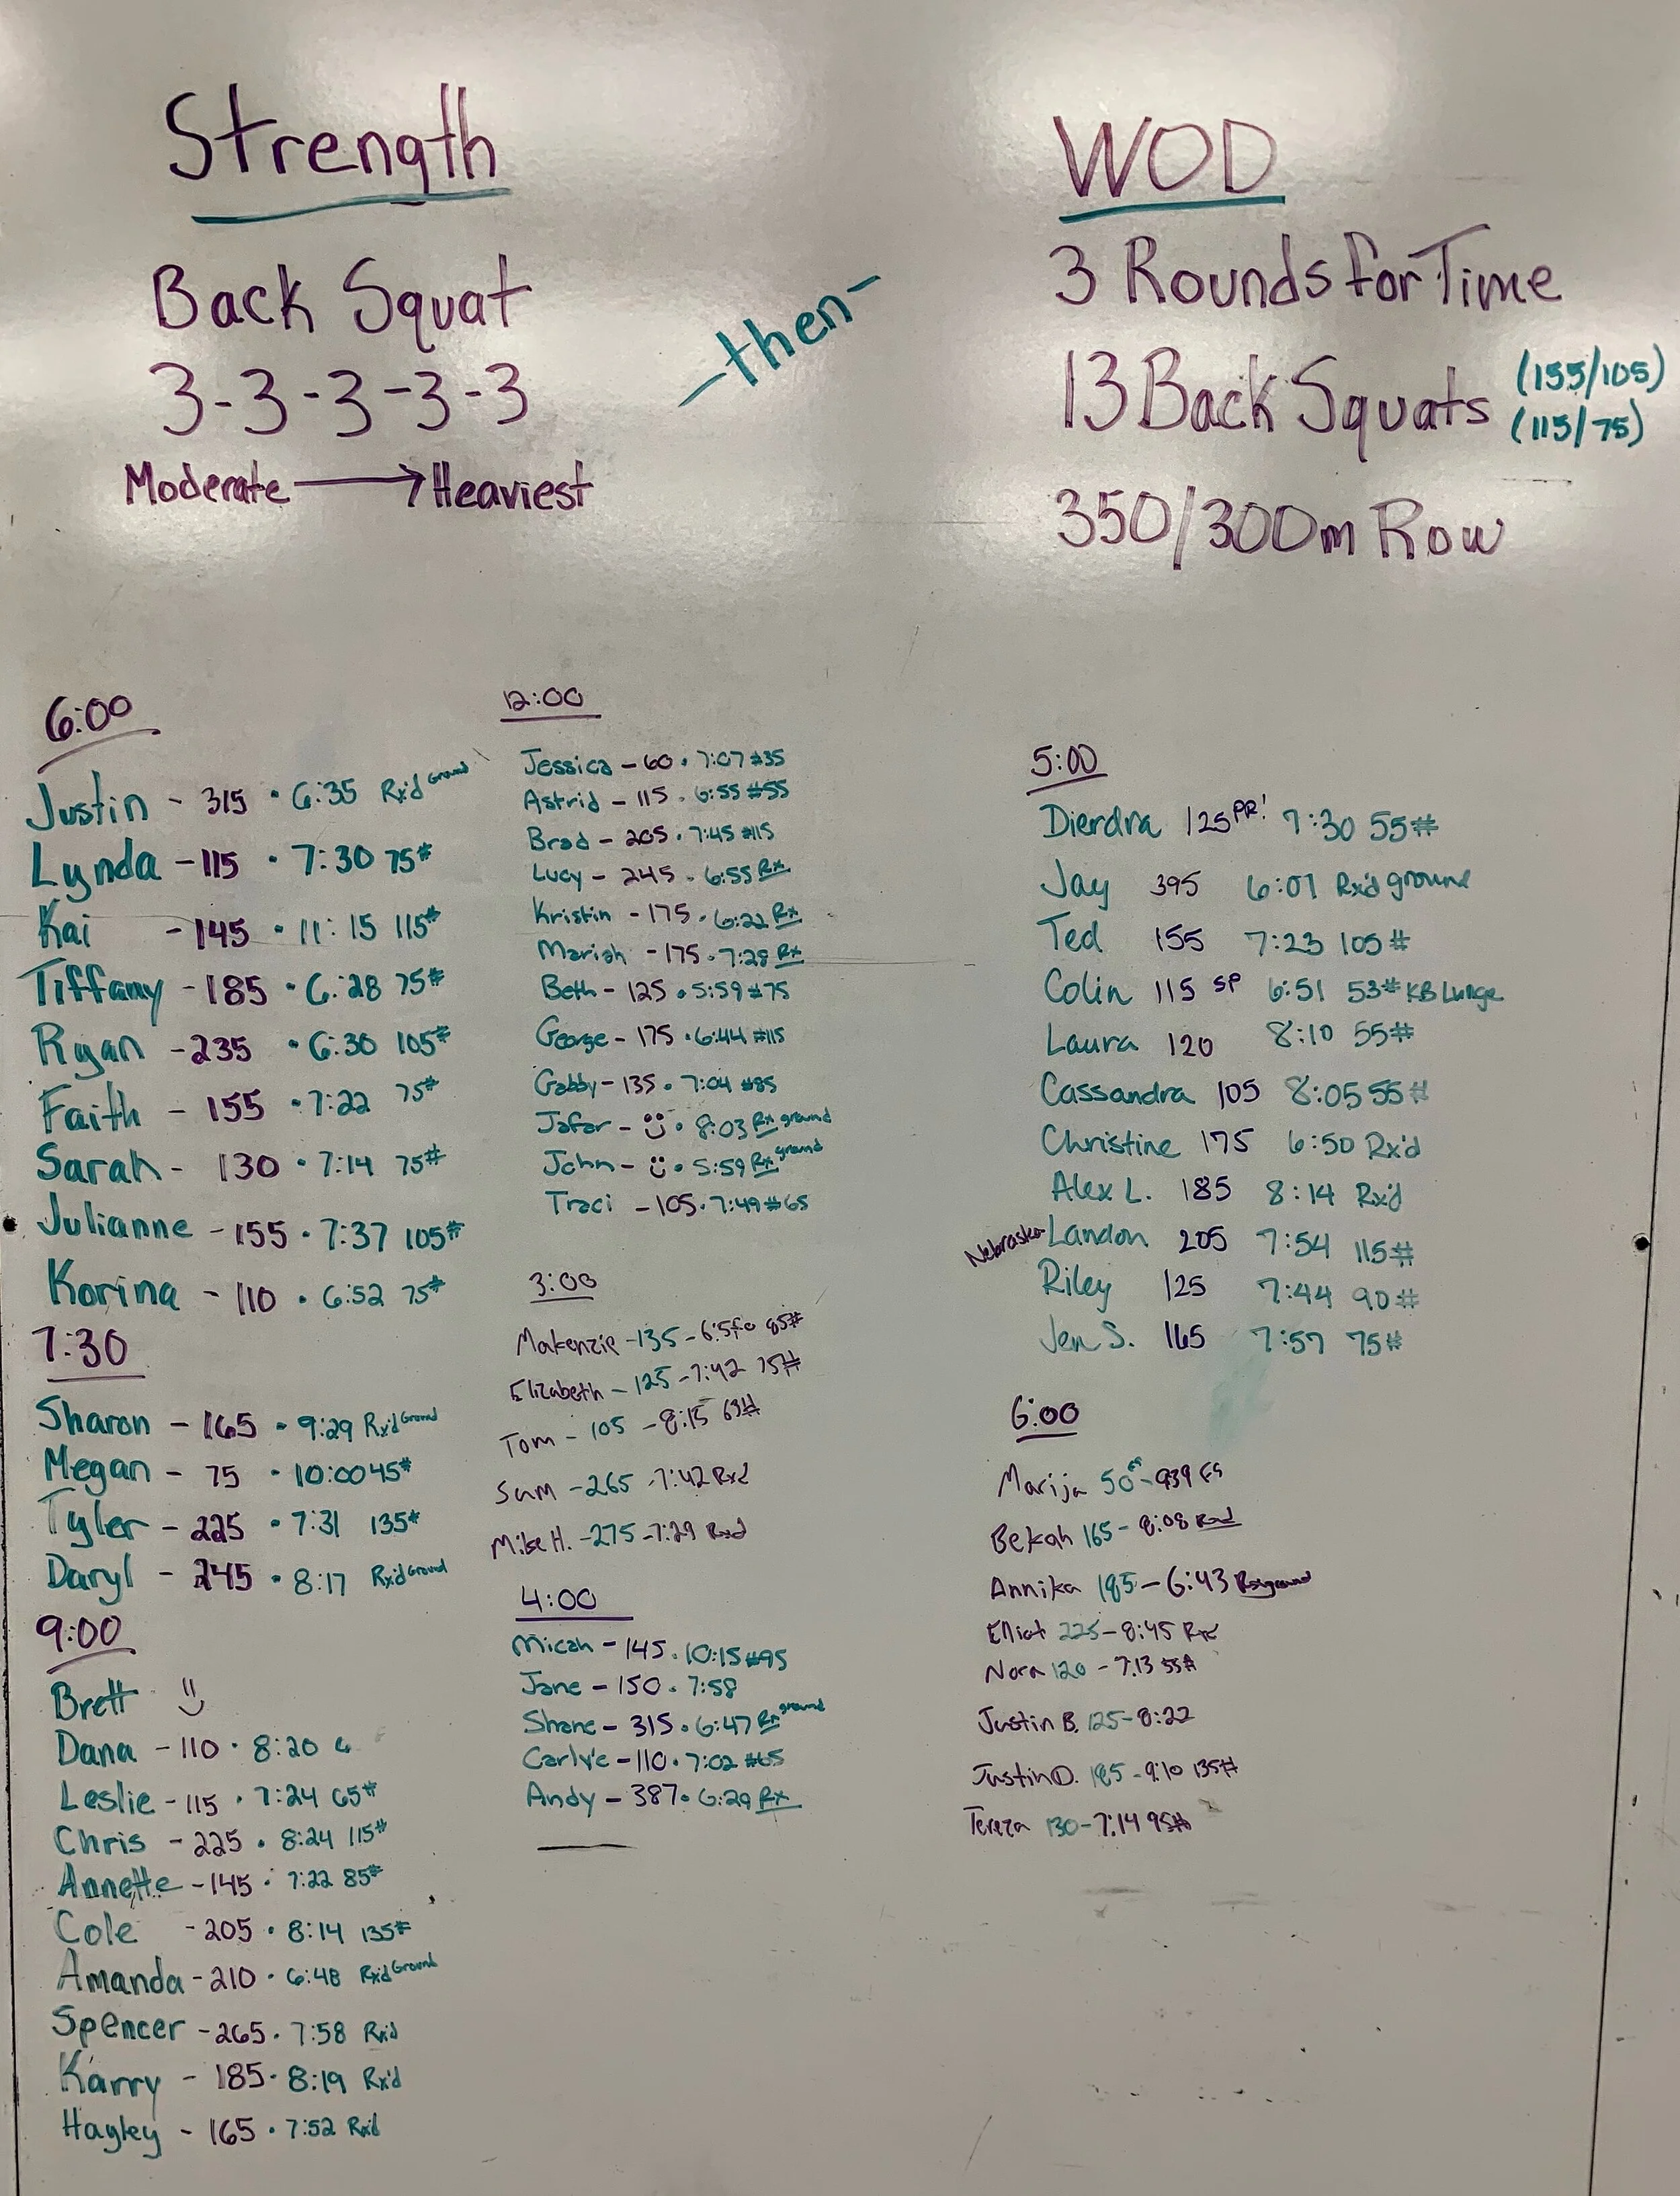 Strength
Back Squat
3-3-3-3-3
Moderate → Heaviest
-then-
WOD
3 Rounds for Time
13 Back Squats (155/105)
(115/75)
350/300m Row
6:00
Justin - 315 • 6:35 Rx'd Ground
Lynda - 115 • 7:30 75#
Kai - 145 • 11:15 115#
Tiffany - 185 • 6:28 75#
Ryan - 235 • 6:30 105#
Faith - 155 • 7:22 75#
Sarah - 130 • 7:14 75#
Julianne - 155 • 7:37 105#
Korina - 110 • 6:52 75#
7:30
Sharon - 165 • 9:29 Rx'd Ground
Megan - 75 • 10:00 45#
Tyler - 225 • 7:31 135#
Daryl - 245 • 8:17 Rx'd Ground
9:00
Brett
Dana - 110 • 8:20
Leslie - 115 • 7:24 65#
Chris - 225 • 8:24 115#
Annette - 145 • 7:22 85#
Cole - 205 • 8:14 135#
Amanda - 210 • 6:48 Rx'd Ground
Spencer - 265 • 7:58 Rx'd
Karry - 185 • 8:19 Rx'd
Hayley - 165 • 7:52 Rx'd
12:00
Jessica - 60 • 7:07 #35
Astrid - 115 • 6:55 #55
Brad - 205 • 7:45 #115
Lucy - 245 • 6:55 Rx
Kristin - 175 • 6:22 Rx
Mariah - 175 • 7:28 Rx
Beth - 125 • 5:59 #75
George - 175 • 6:44 #115
Gabby - 135 • 7:04 #85
Jafar - • 8:03 Rx ground
John - • 5:59 Rx ground
Traci - 105 • 7:49 #65
3:00
Makenzie - 135 - 85#
Elizabeth - 125 - 7:42 75#
Tom - 105 - 8:15 63#
Sam - 265 - 7:42 Rxd
Mike H. - 275 - 7:29 Rxd
4:00
Micah - 145 • 10:15 #95
Jane - 150 • 7:58
Shane - 315 • 6:47 Rx ground
Carlye - 110 • 7:02 #65
Andy - 387 • 6:29 Rx
5:00
Dierdra 125 PR! 7:30 55#
Jay 395 6:07 Rx'd ground
Ted 155 7:23 105#
Colin 115 SP 6:51 53# KB Lunge
Laura 120 8:10 55#
Cassandra 105 8:05 55#
Christine 175 6:50 Rx'd
Alex L. 185 8:14 Rx'd
Nebraska Landon 205 7:54 115#
Riley 125 7:44 90#
Jen S. 165 7:57 75#
6:00
Marija 50 FS - 939 FS
Bekah 165 - 8:08 Rxd
Annika 185 - 6:43 Rx ground
Elliot 225 - 8:45 Rxd
Nora 120 - 7:13 55#
Justin B. 125 - 8:22
Justin D. 185 - 9:10 135#
Tereza 130 - 7:14 95#